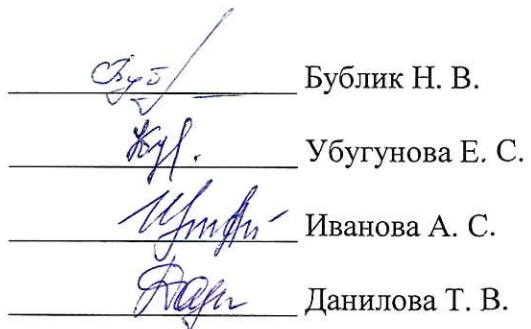 Бублик Н. В.
Убугунова Е. С.
Иванова А. С.
Данилова Т. В.